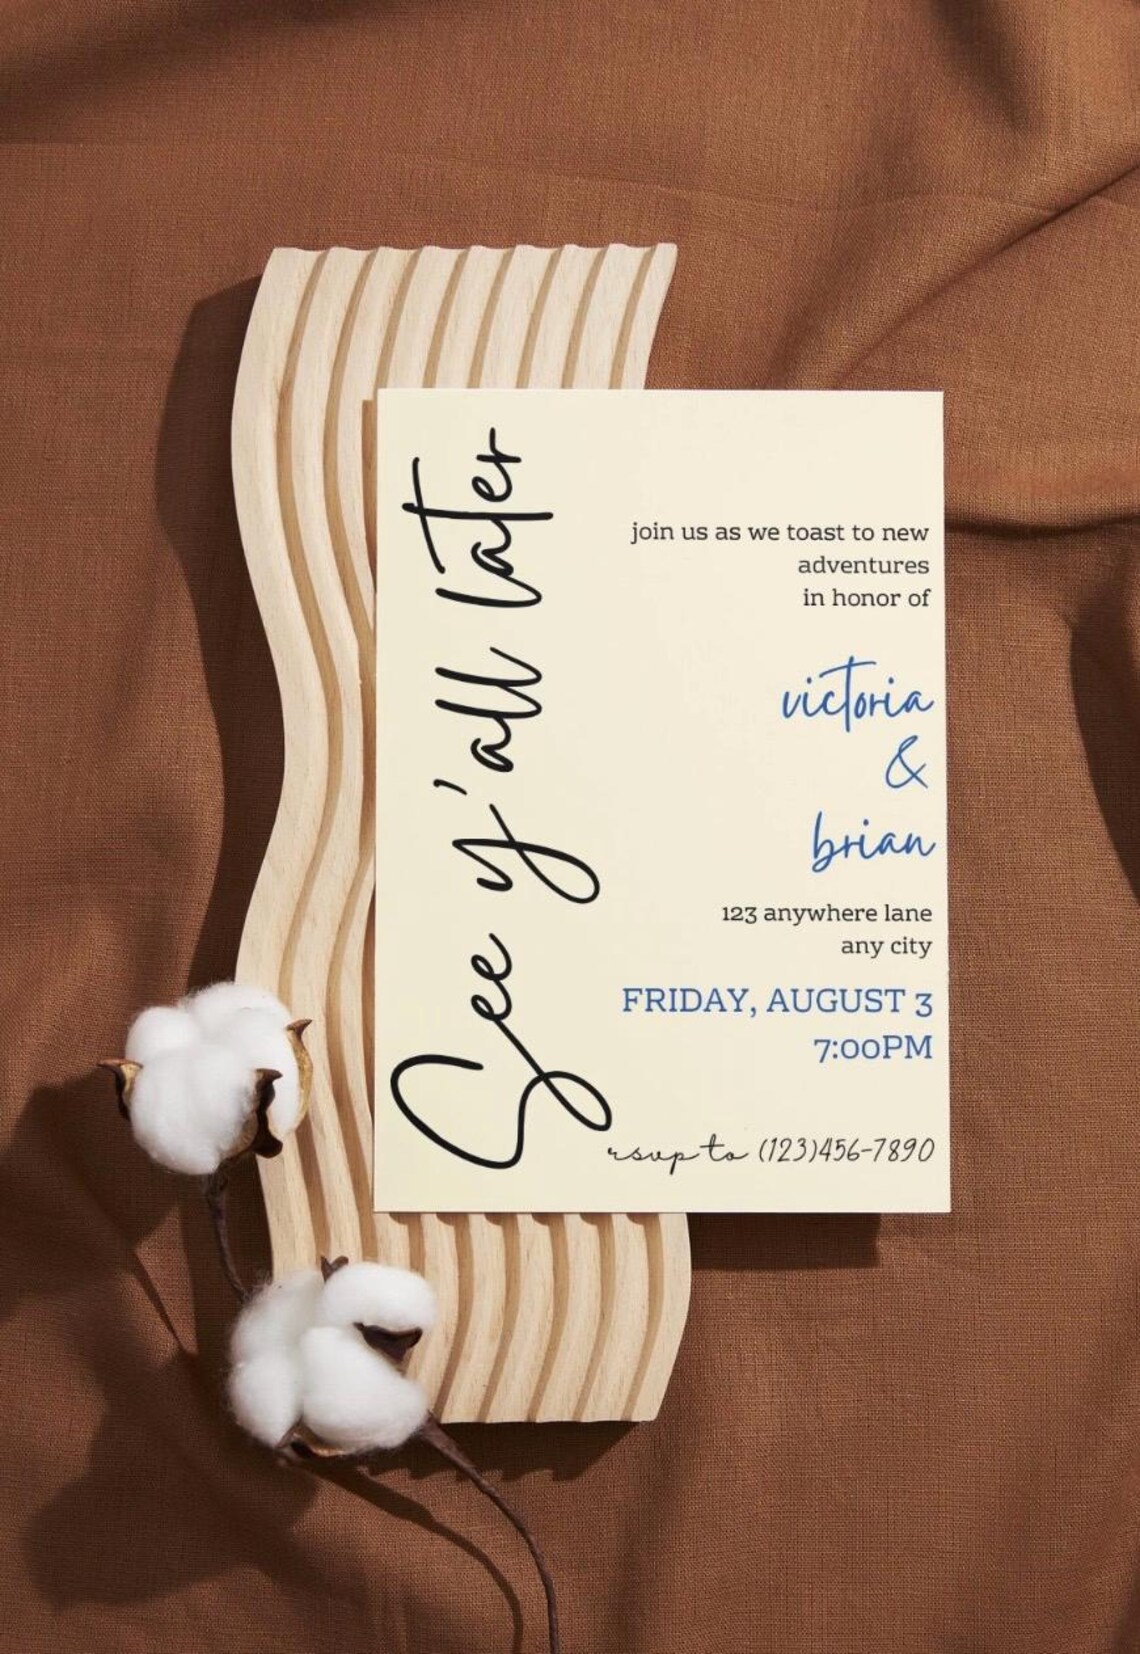 See y'all later
join us as we toast to new
adventures
in honor of
victoria
&
brian
123 anywhere lane
any city
FRIDAY, AUGUST 3
7:00PM
rsvp to (123)456-7890